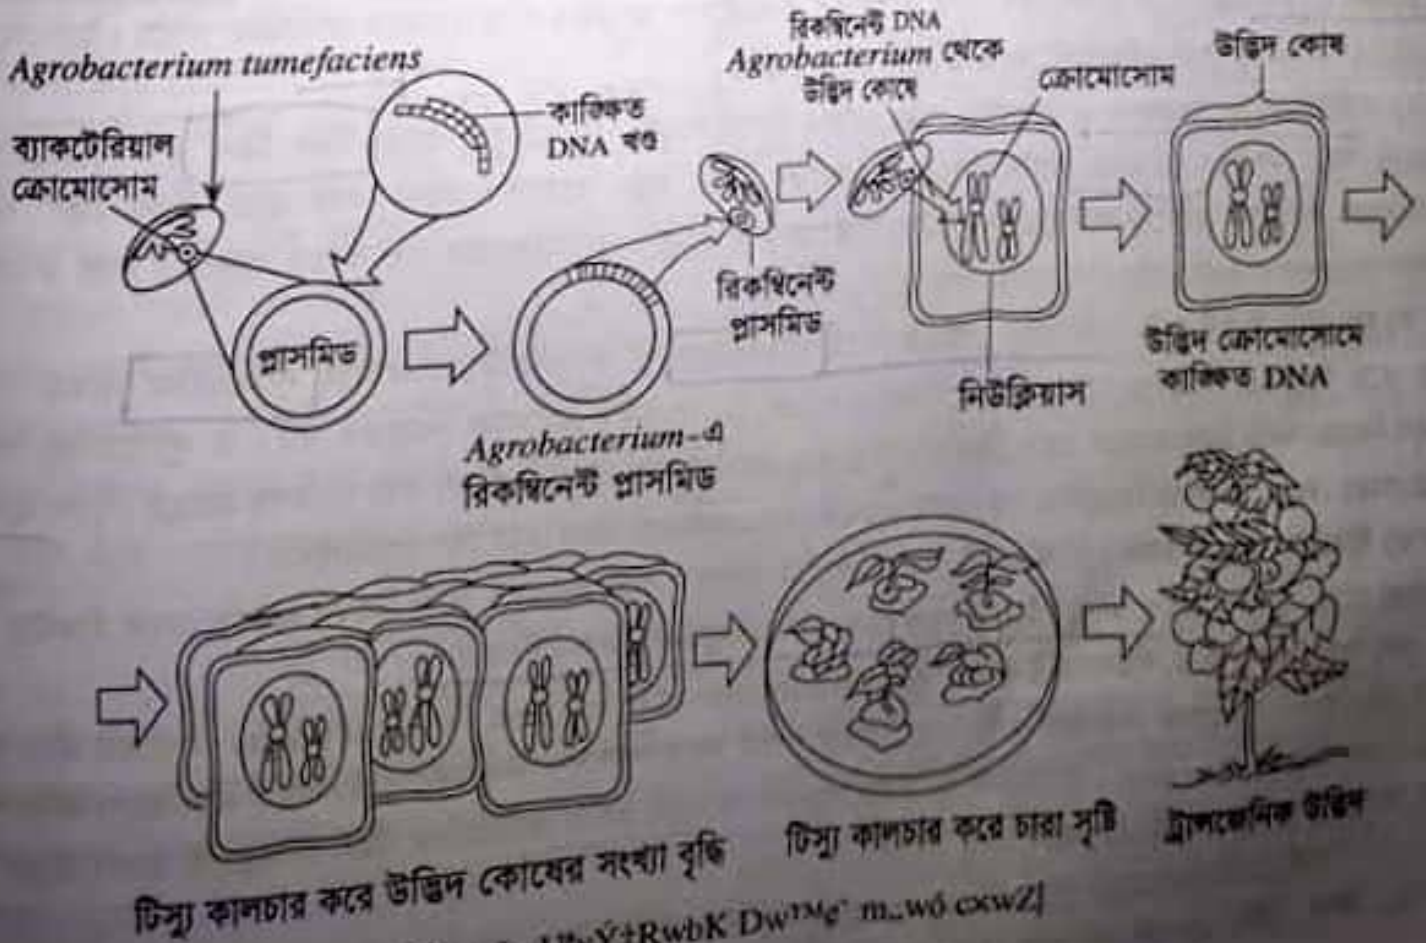 Agrobacterium tumefaciens
ব্যাকটেরিয়াল
ক্রোমোসোম
কাঙ্ক্ষিত
DNA খণ্ড
প্লাসমিড
Agrobacterium-এ
রিকম্বিনেন্ট প্লাসমিড
রিকম্বিনেন্ট
প্লাসমিড
রিকম্বিনেন্ট DNA
Agrobacterium থেকে
উদ্ভিদ কোষে
ক্রোমোসোম
নিউক্লিয়াস
উদ্ভিদ কোষ
উদ্ভিদ ক্রোমোসোমে
কাঙ্ক্ষিত DNA
টিস্যু কালচার করে উদ্ভিদ কোষের সংখ্যা বৃদ্ধি
টিস্যু কালচার করে চারা সৃষ্টি
ট্রান্সজেনিক উদ্ভিদ